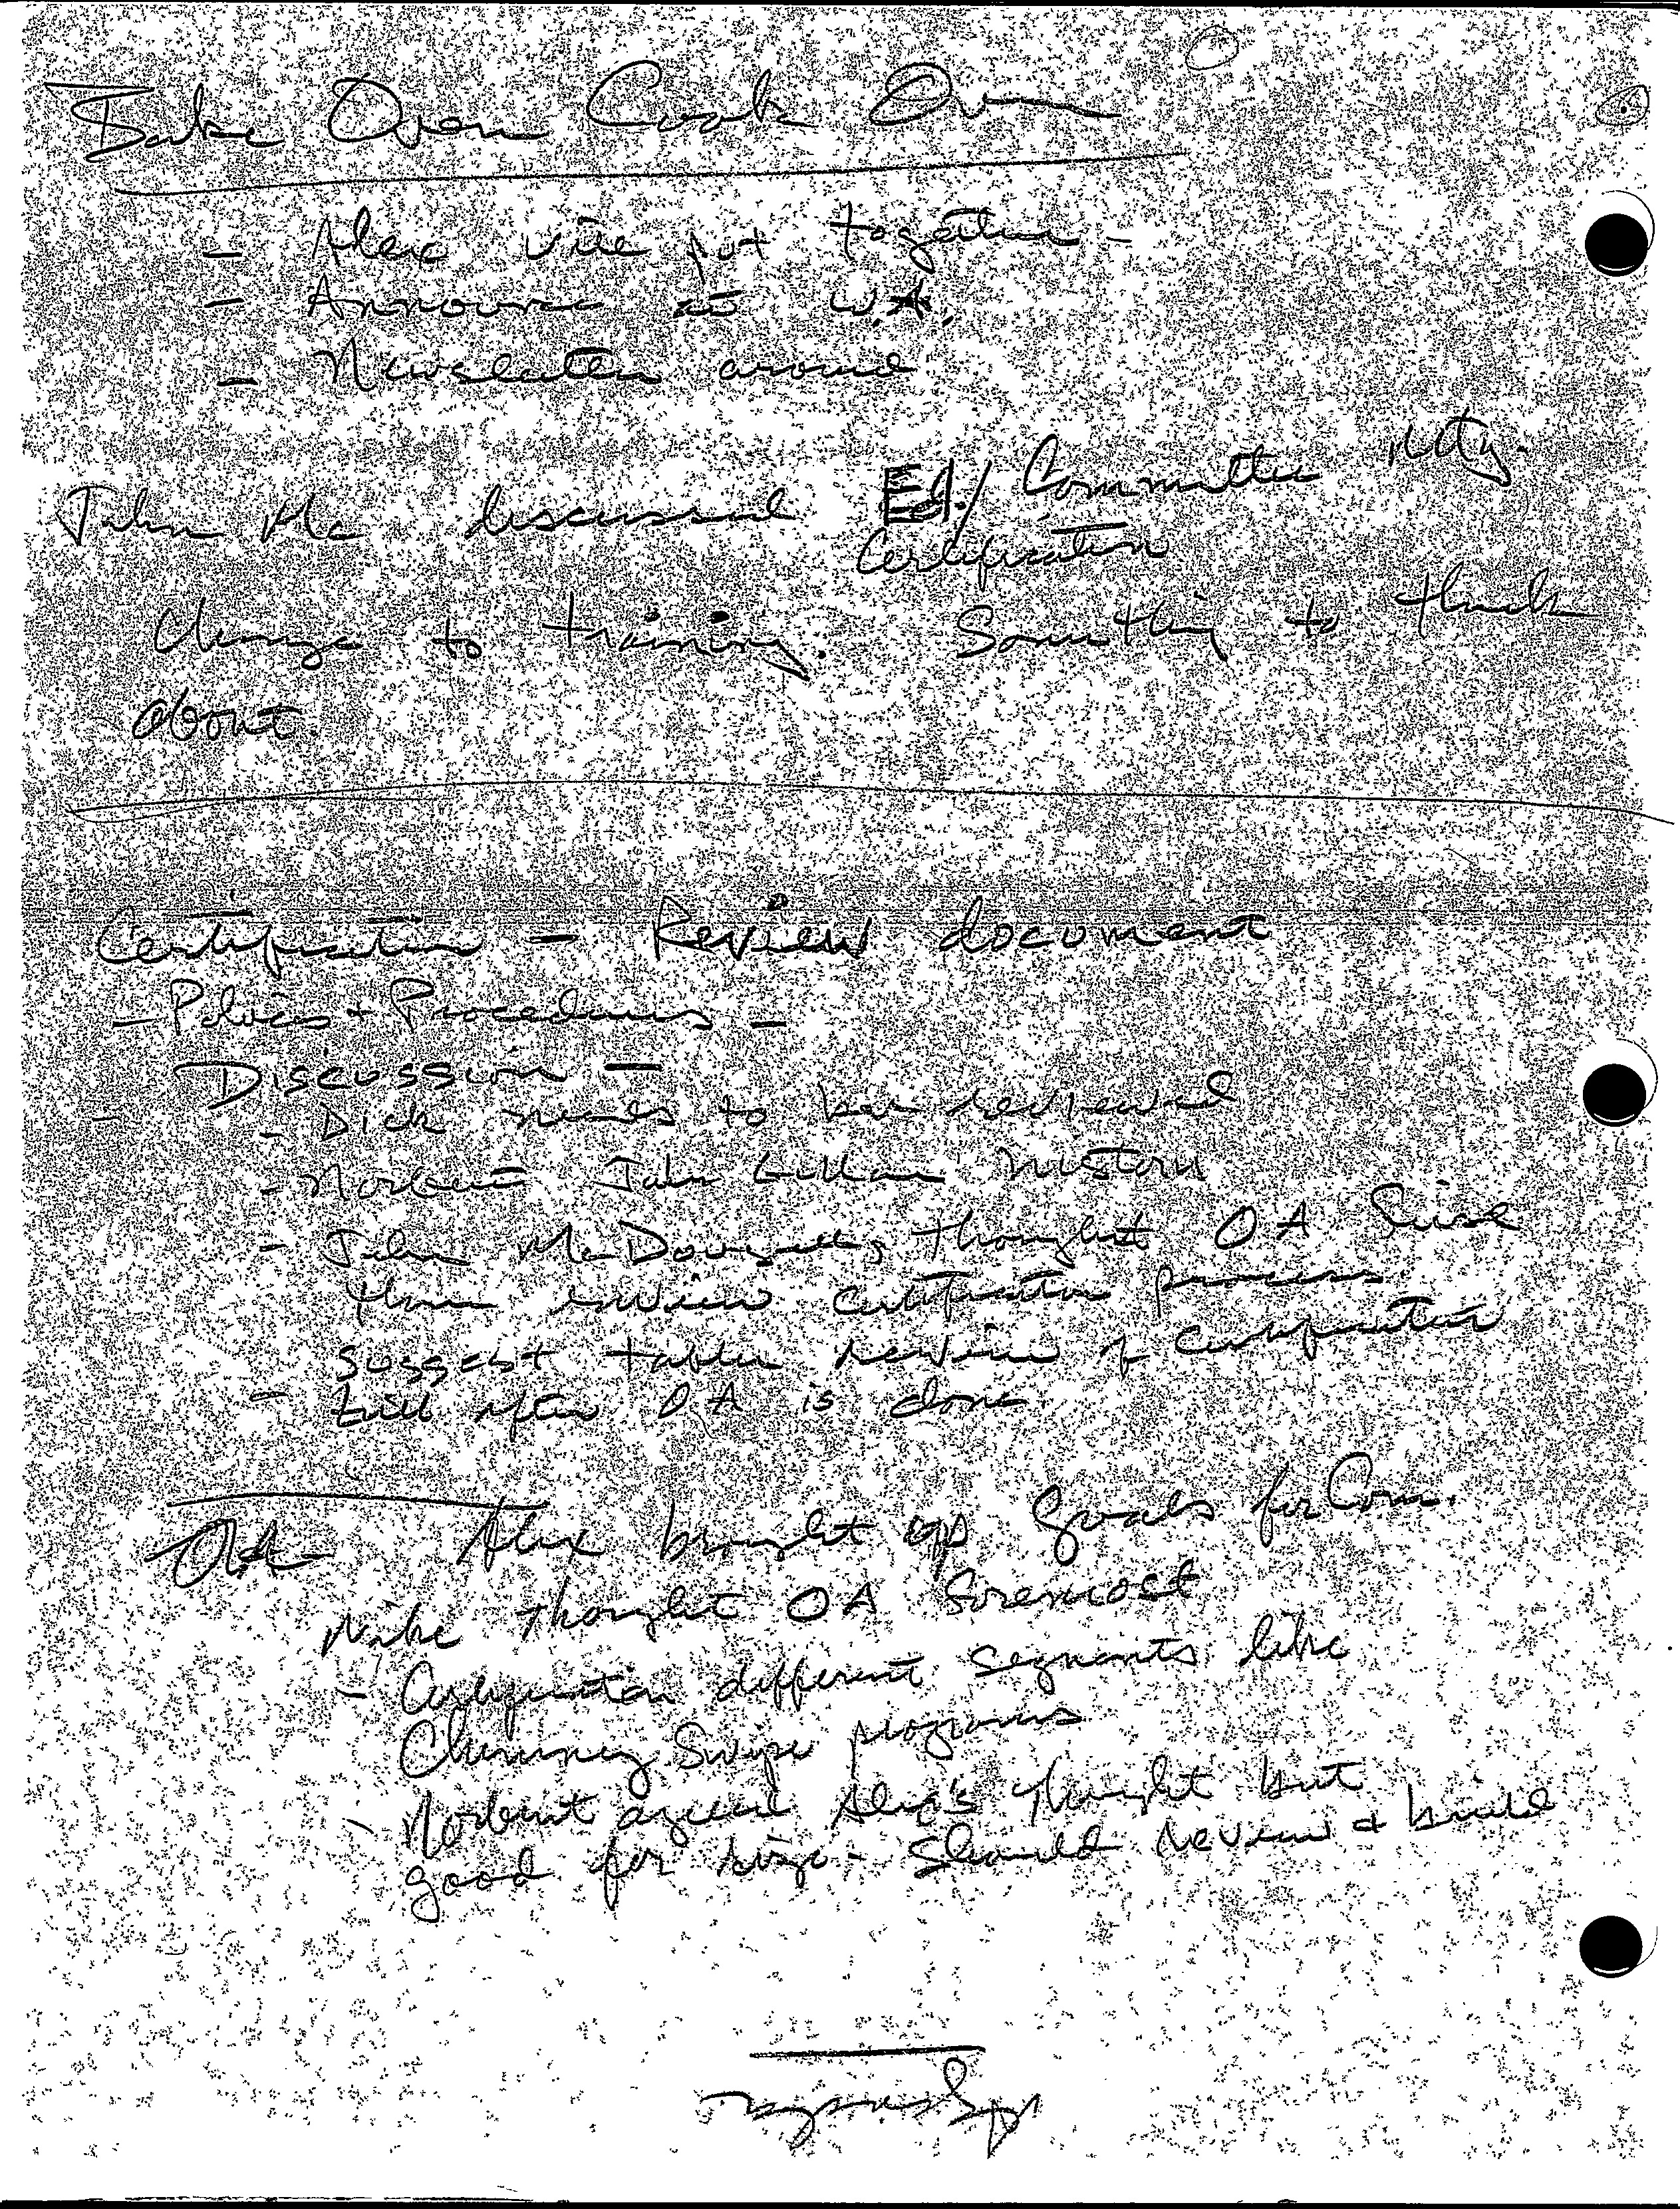 Bake Oven Cook Oven
- Alex will put together -
- Announce at W.A.
- Newsletter around
John Mc discussed Ed./ Committee mtg.
Certification
Change to training. Something to think
about.
Certification - Review document
- Policies + Procedures -
Discussion -
- Dick needs to be reviewed
- Norbert John Gullan history
- John McDougall thought OA first
then review certification process
suggest table review of certification
- till after OA is done.
OA Alex brought up goals for Com.
Mike thought OA foremost
- Certification different segments like
Chimney Swipe programs
- Norbert agreed Alex's thought but
good for - should review + build